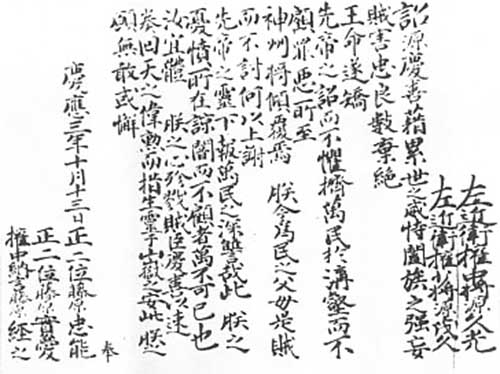 左近衛權中將源久光
左近衛權少將源茂久
詔源慶喜藉累世之威恃闔族之强妄
賊害忠良數棄絶
王命遂矯
先帝之詔而不懼擠萬民於溝壑而不
顧罪惡所至
神州將傾覆焉 朕今爲民之父母是賊
而不討何以上謝
先帝之靈下報萬民之深讐哉此 朕之
憂憤所在諒闇而不顧者萬不可已也
汝宜體 朕之心殄戮賊臣慶喜以速
奏回天之偉勳而措生靈于山嶽之安此 朕之
願無敢或懈
奉
慶應三年十月十三日 正二位藤原忠能
正二位藤原實愛
權中納言藤原經之